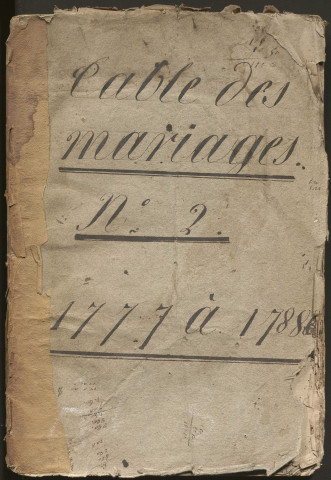 Table des
mariages.
N° 2.
1777 à 1788